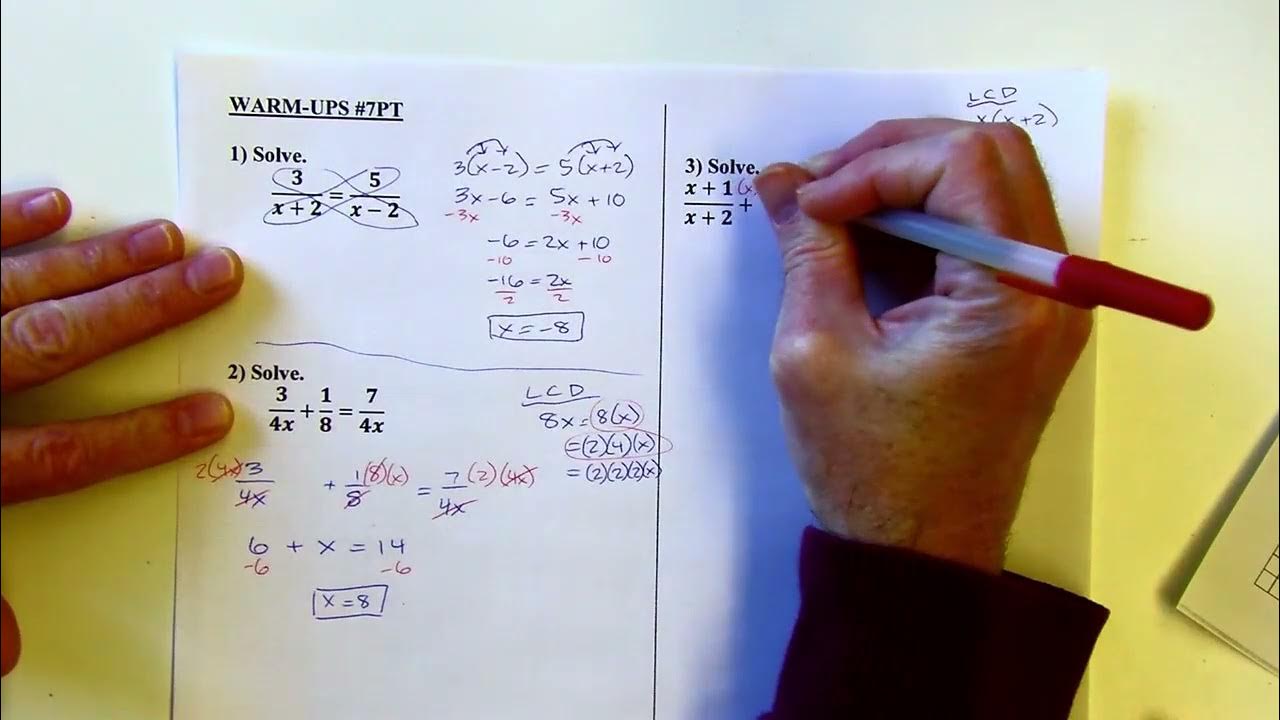 WARM-UPS #7PT
1) Solve.
3/(x + 2) = 5/(x − 2)
3(x−2) = 5(x+2)
3x−6 = 5x+10
−3x −3x
−6 = 2x+10
−10 −10
−16 = 2x
2 2
x = −8
2) Solve.
3/(4x) + 1/8 = 7/(4x)
LCD
8x = 8(x)
=(2)(4)(x)
=(2)(2)(2)(x)
2(4x)3/(4x) + 1(8)(x)/8 = 7(2)(4x)/(4x)
6 + x = 14
−6 −6
x = 8
LCD
x(x+2)
3) Solve.
(x + 1)(x)/(x + 2) +